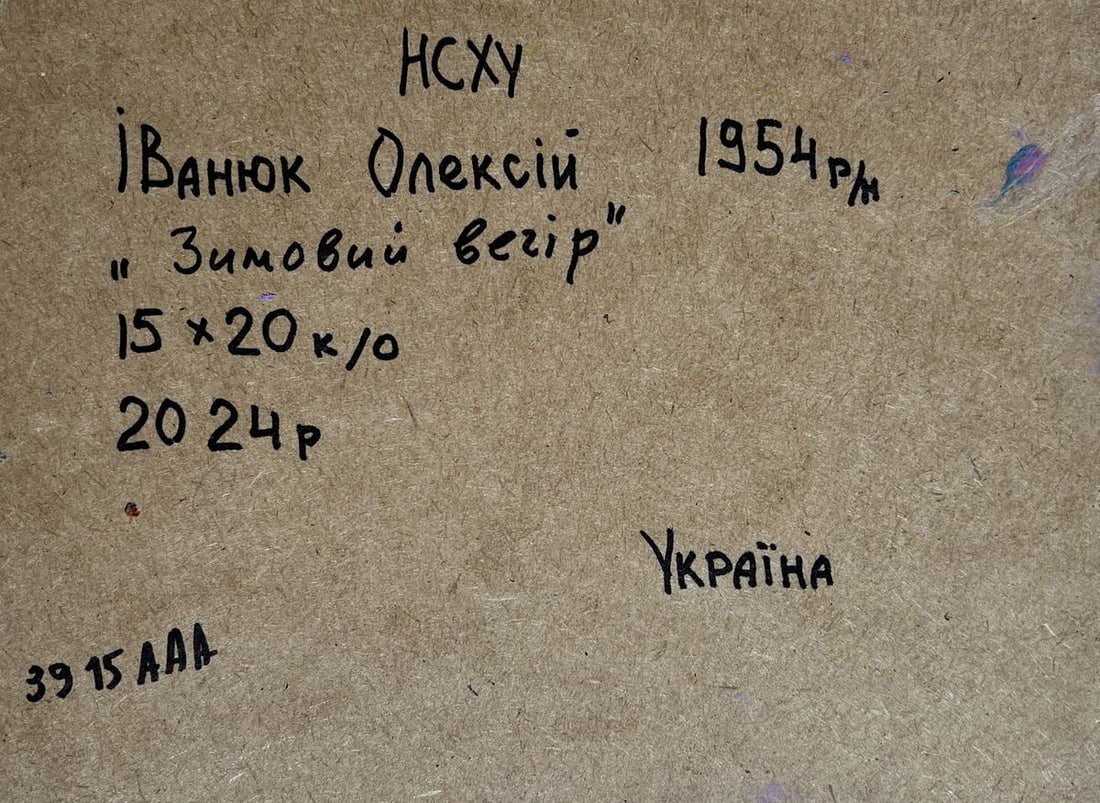 НСХУ
Іванюк Олексій 1954 р/н
„Зимовий вечір"
15 x 20 к/о
2024р
Україна
3915 ААА